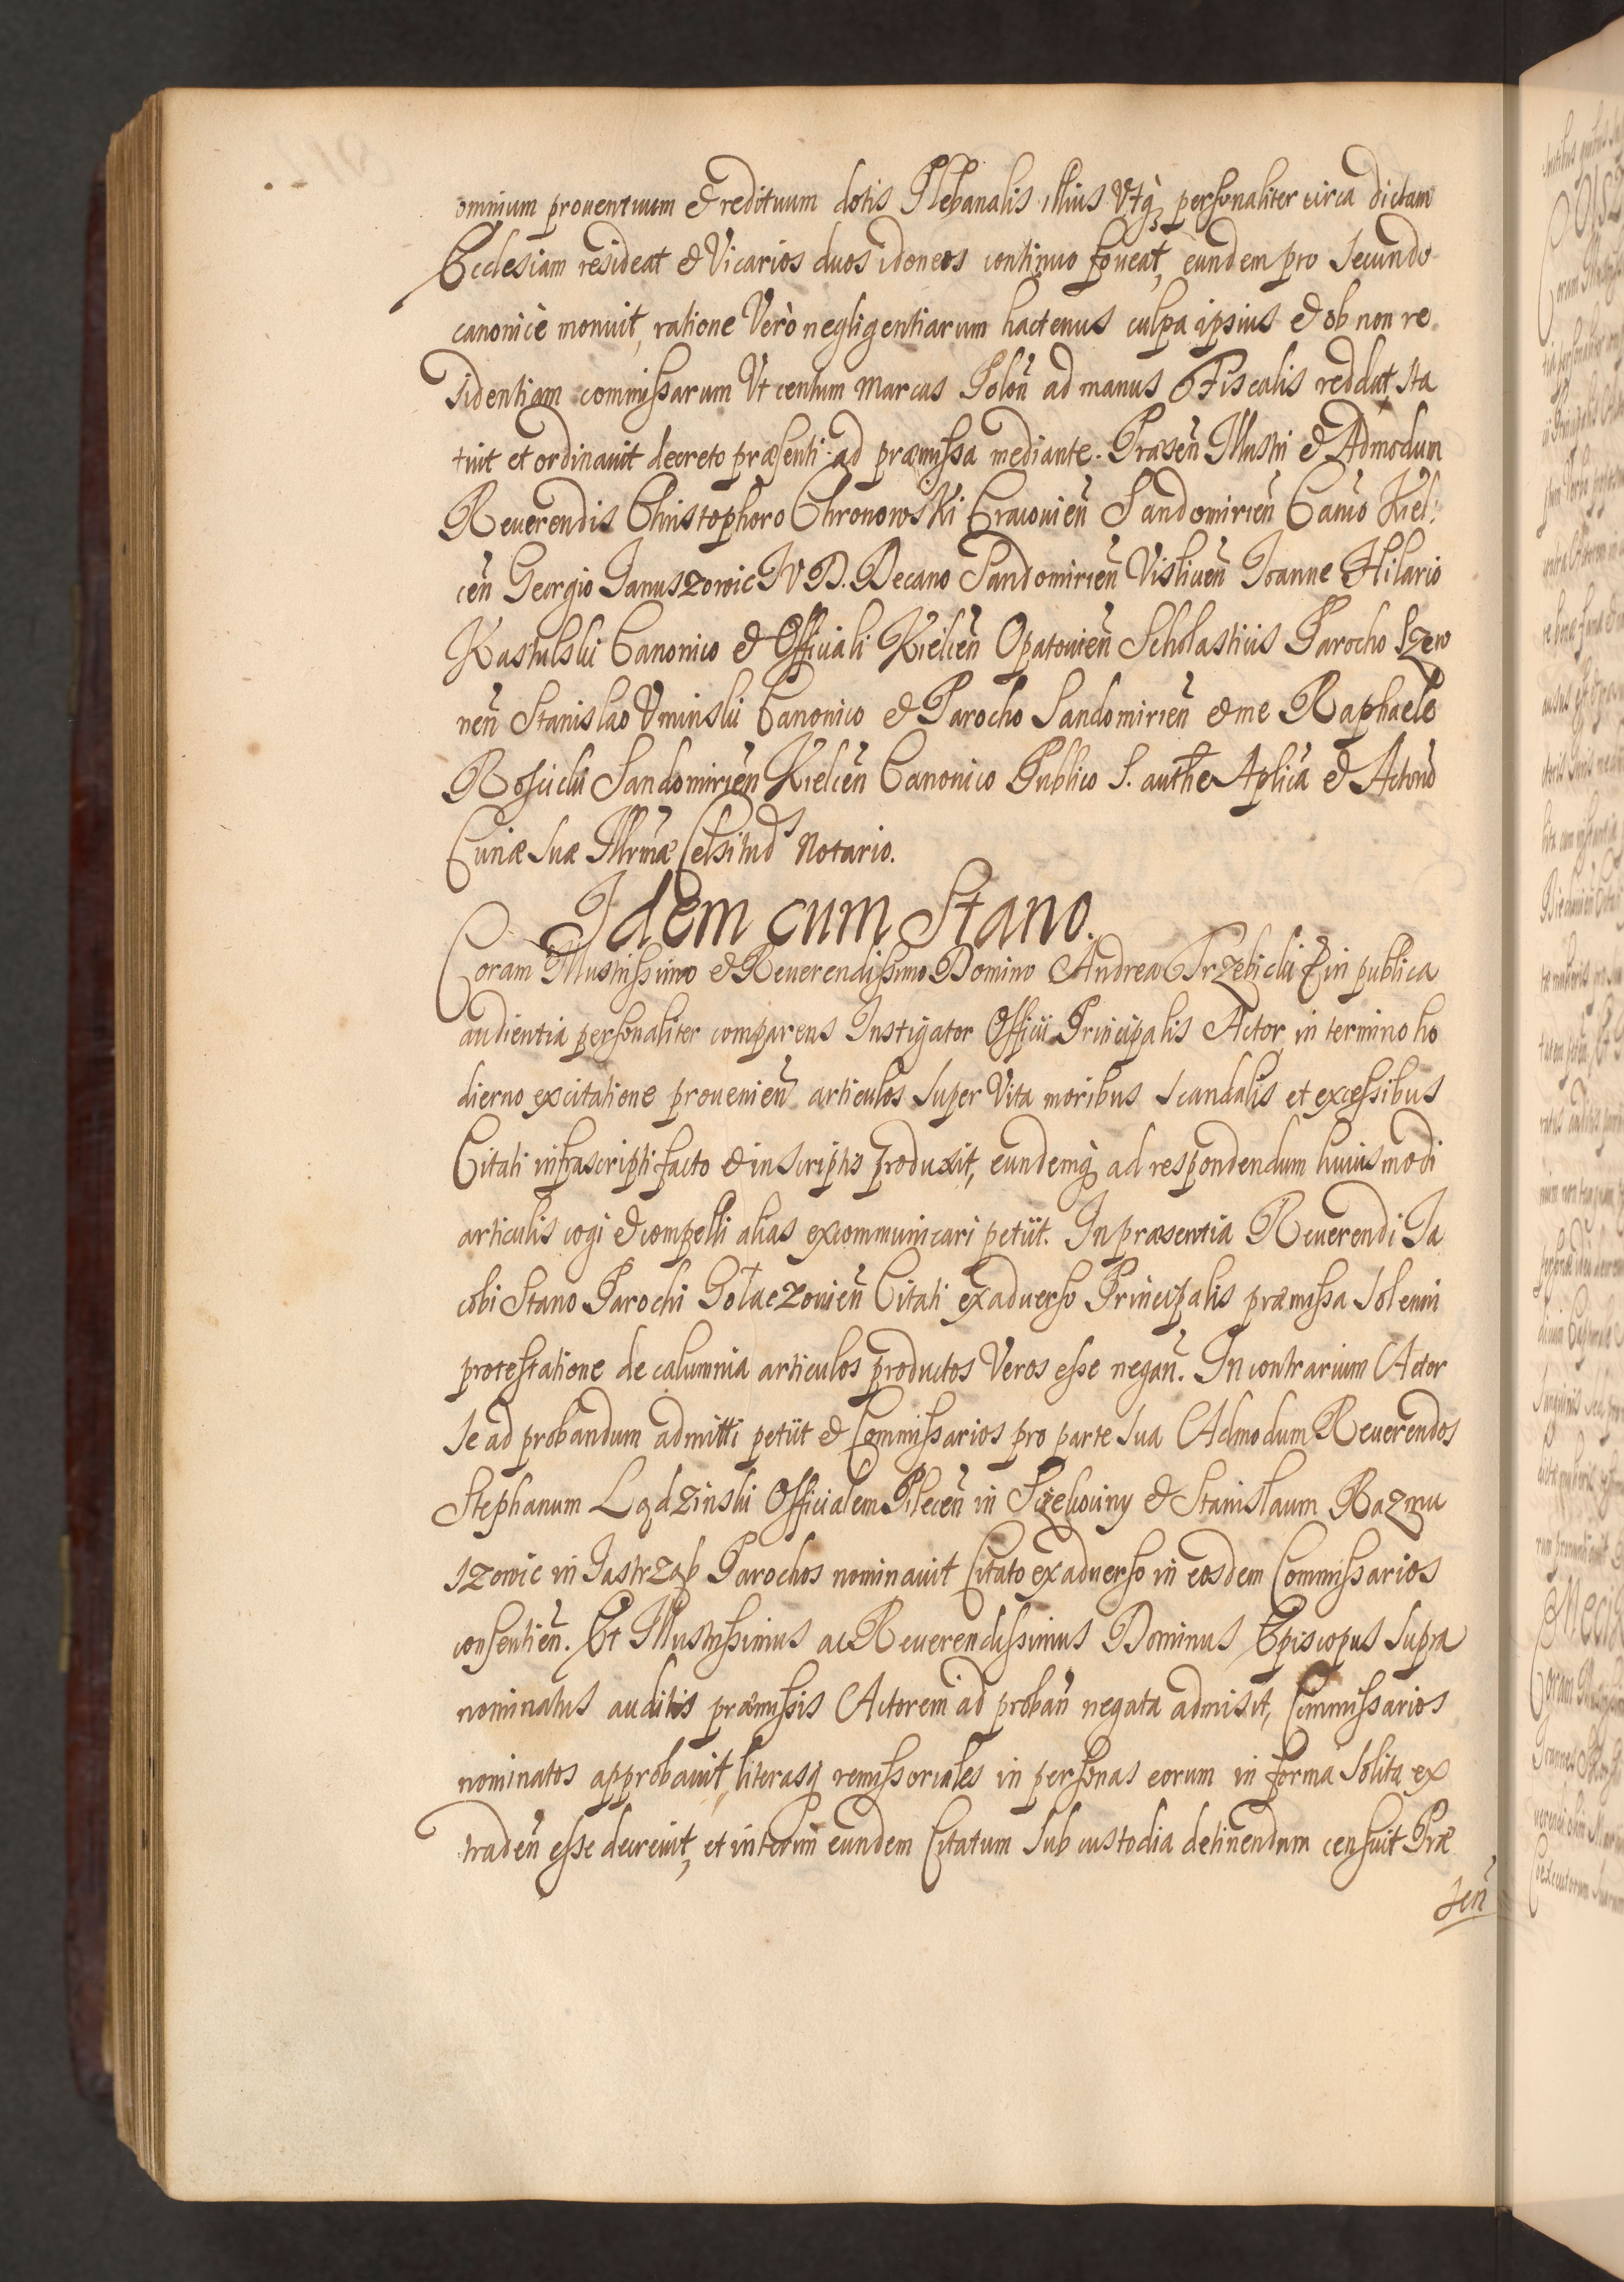 omnium prouentuum & redituum dotis Plebanalis illius Vtq; personaliter circa dictam
Ecclesiam resideat & Vicarios duos idoneos continuo foueat, eundem pro secundo
canonicè monuit, ratione Verò negligentiarum hactenus culpa ipsius & ob non re
sidentiam commissarum Vt centum marcas Polon̄ ad manus Fiscalis reddat, sta
tuit et ordinauit decreto præsenti ad præmissa mediante. Præsen̄ Illustri & Admodum
Reuerendis Christophoro Chronowski Cracouien̄ Sandomirien̄ Canco Kiel:
cen̄ Georgio Januszowic JVD. Decano Sandomirien̄ Visliuen̄ Joanne Hilario
Kastulski Canonico & Officiali Kielcen̄ Opatouien̄ Scholasticis Parocho Szew
nen̄ Stanislao Vminski Canonico & Parocho Sandomirien̄ & me Raphaele
Roscicki Sandomirien̄ Kielcen̄ Canonico Publico S. authe Aplica & Actorū
Curiæ suæ Illrmæ Celsitud Notario.
Idem cum Stano.
Coram Illustrissimo & Reuerendissimo Domino Andrea Trzebicki & in publica
audientia personaliter comparens Instigator Officii Principalis Actor in termino ho
dierno ex citatione prouenien̄ articulos super Vita moribus scandalis et excessibus
Citati infrascripti facto & in scriptis produxit, eundemq; ad respondendum huiusmodi
articulis cogi & compelli alias excommunicari petiit. In præsentia Reuerendi Ja
cobi Stano Parochi Gołaczouien̄ Citati ex aduerso Principalis præmissa solenni
protestatione de calumnia articulos productos Veros esse negan̄. In contrarium Actor
se ad probandum admitti petiit & Commissarios pro parte sua Admodum Reuerendos
Stephanum Lądzinski Officialem Pilecen̄ in Szczekociny & Stanislaum Razmu
szowic in Jastrząb Parochos nominauit Citato ex aduerso in eosdem Commissarios
consentien̄. Et Illustrissimus ac Reuerendissimus Dominus Episcopus supra
nominatus auditis præmissis Actorem ad proban̄ negata admisit, Commissarios
nominatos approbauit, literasq; remissoriales in personas eorum in forma solita ex
traden̄ esse decreuit, et interim eundem Citatum sub custodia detinendum censuit Præ
sen̄